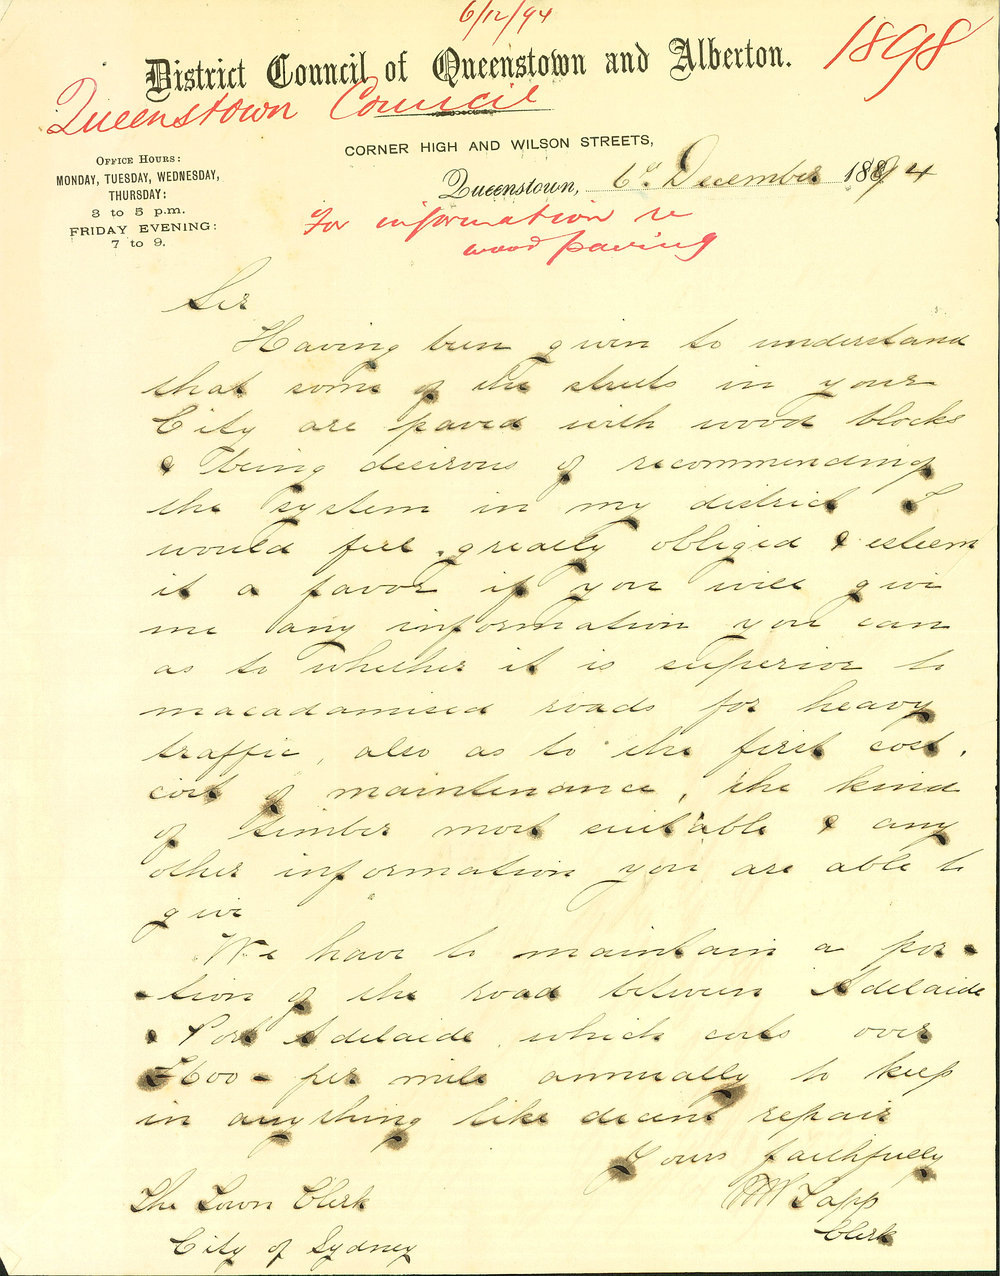 6/12/94
1898
District Council of Queenstown and Alberton.
Queenstown Council
CORNER HIGH AND WILSON STREETS,
OFFICE HOURS:
MONDAY, TUESDAY, WEDNESDAY,
THURSDAY:
3 to 5 p.m.
FRIDAY EVENING:
7 to 9.
Queenstown, 6th December 1894
For information re
wood paving
Sir
Having been given to understand
that some of the streets in your
City are paved with wood blocks
& being desirous of recommending
the system in my district I
would feel greatly obliged & esteem
it a favor if you will give
me any information you can
as to whether it is superior to
macadamised roads for heavy
traffic, also as to the first cost,
cost of maintenance, the kind
of timber most suitable & any
other information you are able to
give
We have to maintain a por-
-tion of the road between Adelaide
& Port Adelaide which costs over
£600- per mile annually to keep
in anything like decent repair
Yours faithfully
Tapp
Clerk
The Town Clerk
City of Sydney